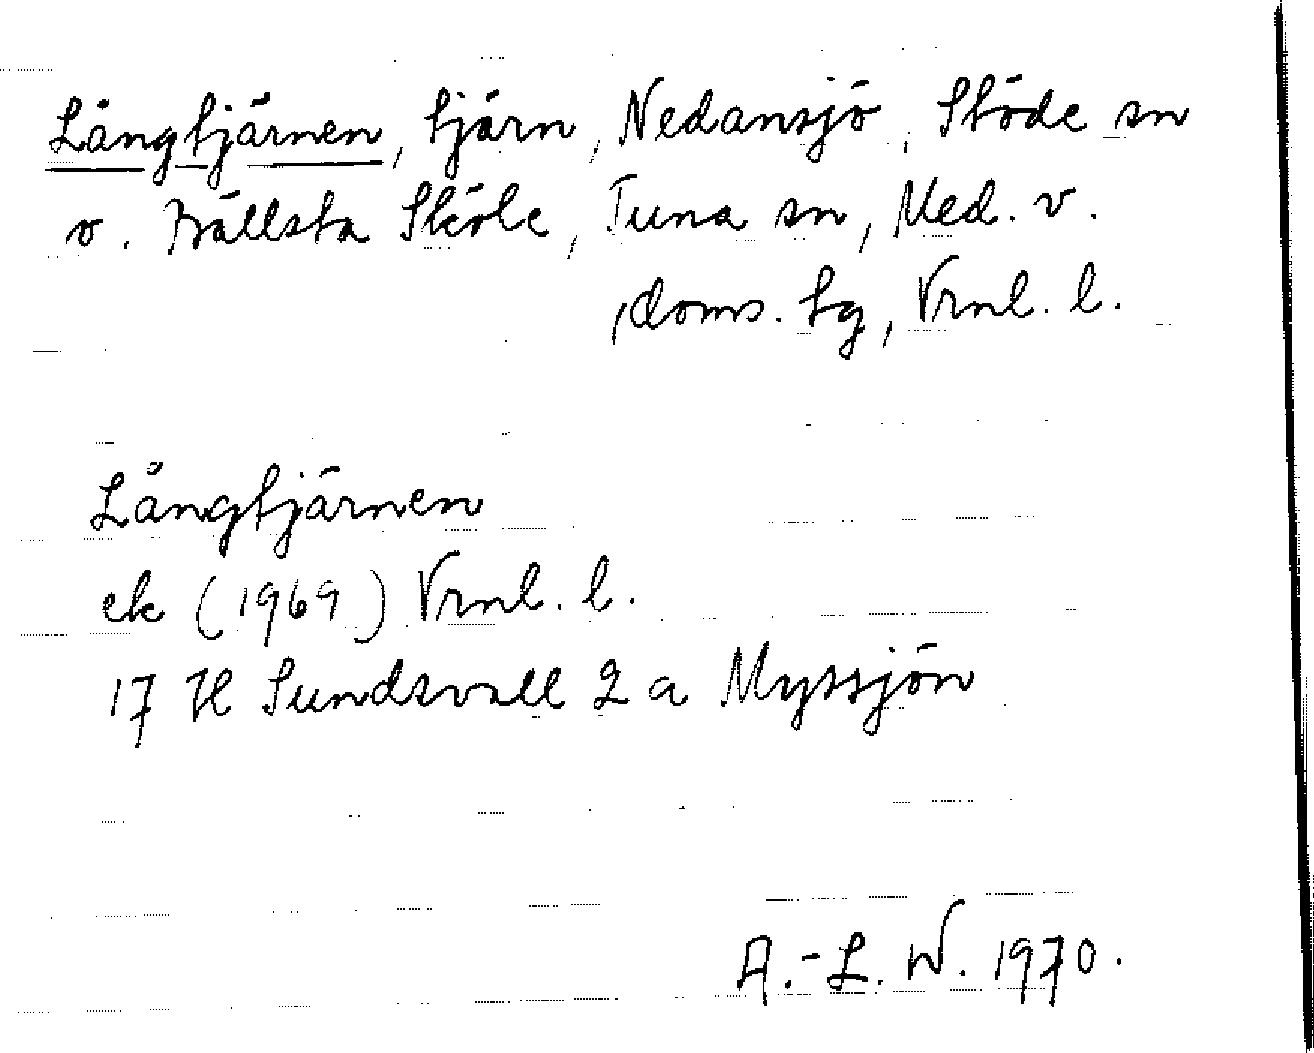 Långtjärnen, tjärn, Nedansjö, Stöde sn
o. Bällsta Sköle, Tuna sn, Med. v.
doms. tg, Vrnl. l.
Långtjärnen
ek (1969) Vrnl. l.
17 H Sundsvall 2 a Myssjön
A.-L. W. 1970.